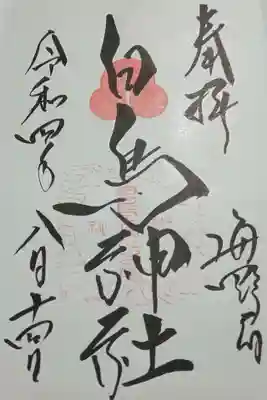 奉拝
海野
白鳥神社
令和四年
八月十四日